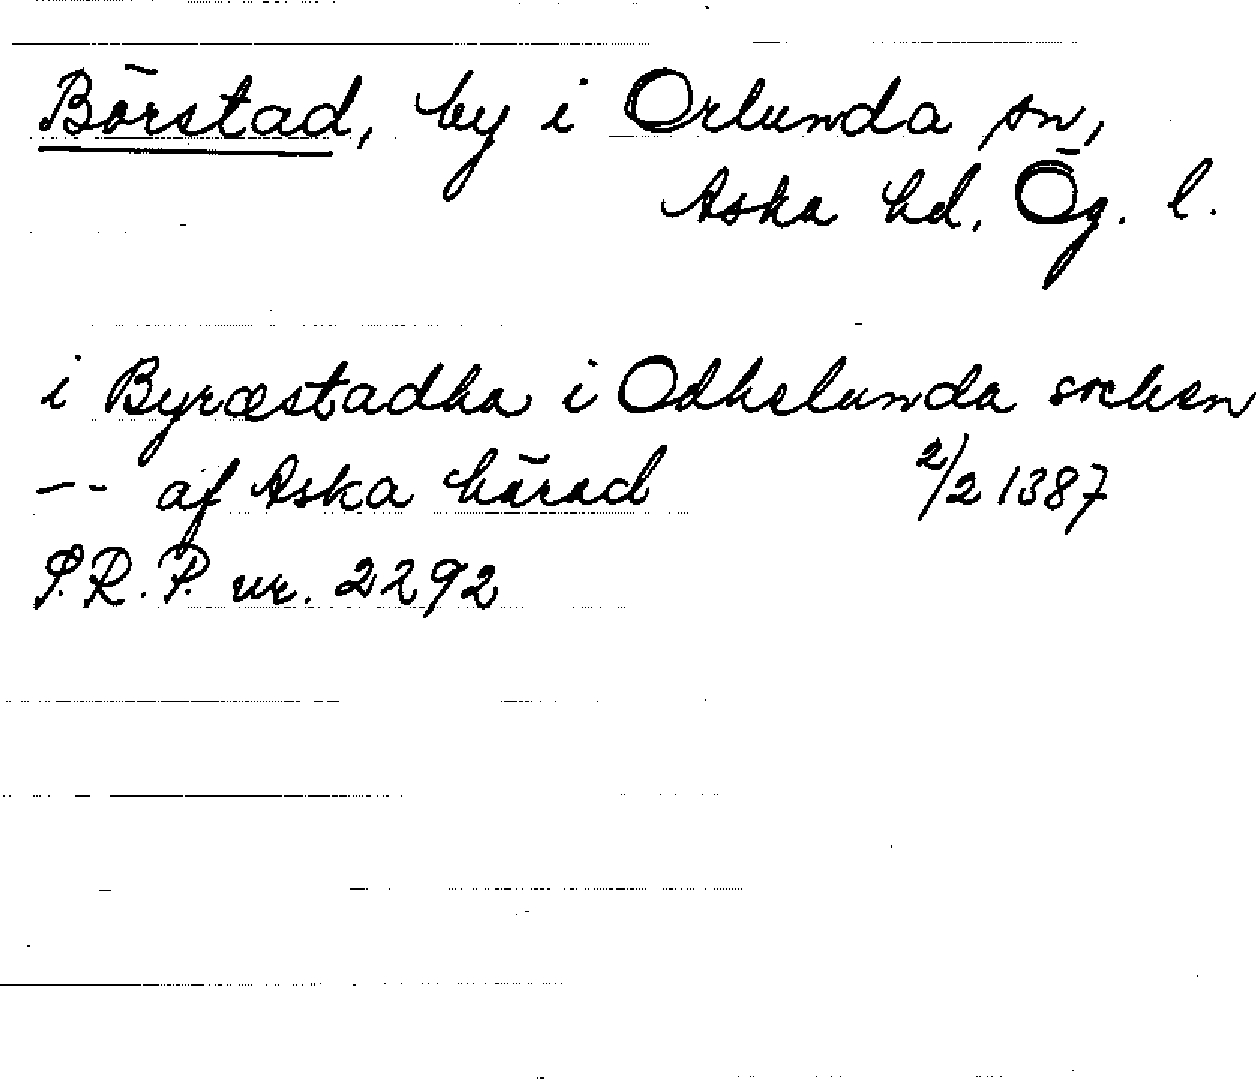 Börstad, by i Orlunda sn,
Aska hd. Ög. l.
i Byræstadha i Odhelunda socken
-- af Aska härad 2/2 1387
S.R.P. nr. 2292